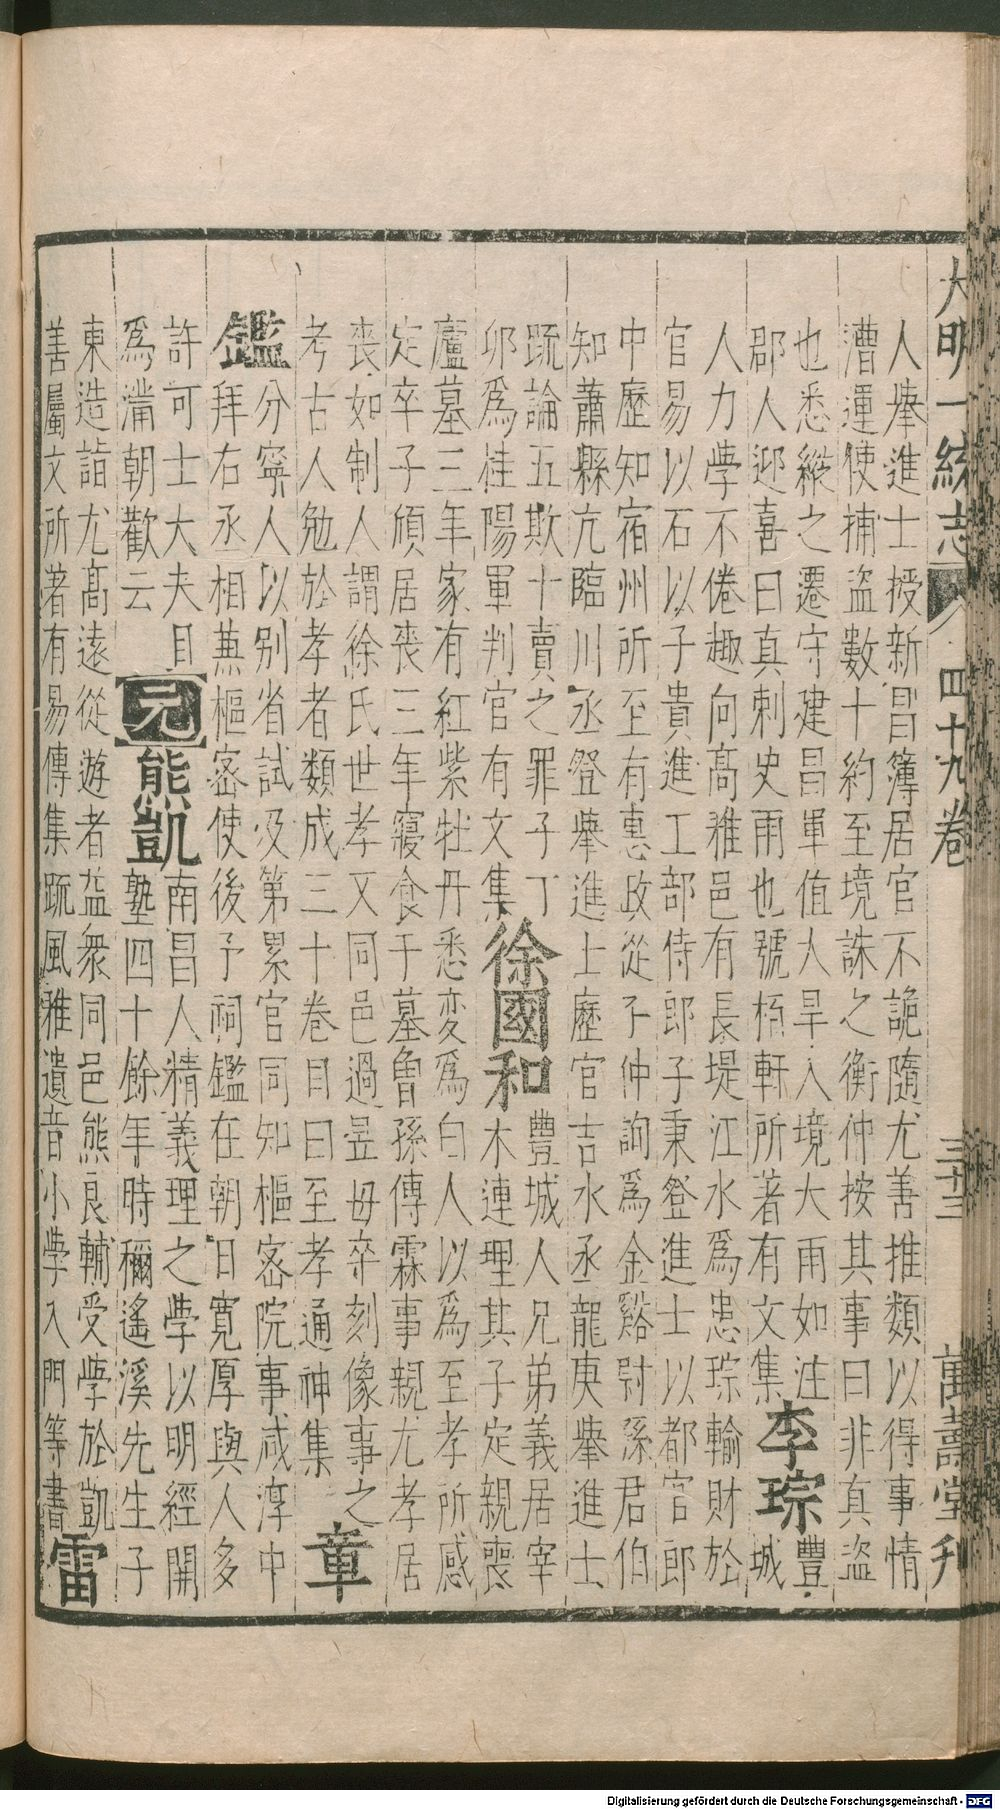 大明一統志 四十九卷 三十三 萬壽堂刊
人舉進士授新昌簿居官不詭隨尤善推類以得事情
漕運使捕盜數十約至境誅之衡仲按其事曰非真盜
也悉縱之遷守建昌軍值大旱入境大雨如注
郡人迎喜曰真刺史雨也號栢軒所著有文集李琮豐城
人力學不倦趣向高雅邑有長堤江水為患琮輸財於
官易以石以子貴進工部侍郎子秉登進士以都官郎
中歷知宿州所至有惠政從子仲詢為金谿尉孫君伯
知蕭縣亢臨川丞登舉進士歷官吉水丞龍庚舉進士
䟽論五欺十賣之罪子丁
卯為桂陽軍判官有文集徐國和豐城人兄弟義居宰
木連理其子定親喪
廬墓三年家有紅紫牡丹悉変為白人以為至孝所感
定卒子頎居喪三年寢食于墓曾孫傳霖事親尤孝居
喪如制人謂徐氏世孝又同邑過昱母卒刻像事之
考古人勉於孝者類成三十卷目曰至孝通神集章
鑑分寧人以別省試及第累官同知樞密院事咸淳中
拜右丞相兼樞密使後予祠鑑在朝日寬厚與人多
許可士大夫目
為滿朝歡云元熊凱南昌人精義理之學以明經開
塾四十餘年時稱遙溪先生子
東造詣尤高遠從遊者益衆同邑熊良輔受學於凱
善屬文所著有易傳集䟽風雅遺音小學入門等書雷
Digitalisierung gefördert durch die Deutsche Forschungsgemeinschaft - DFG